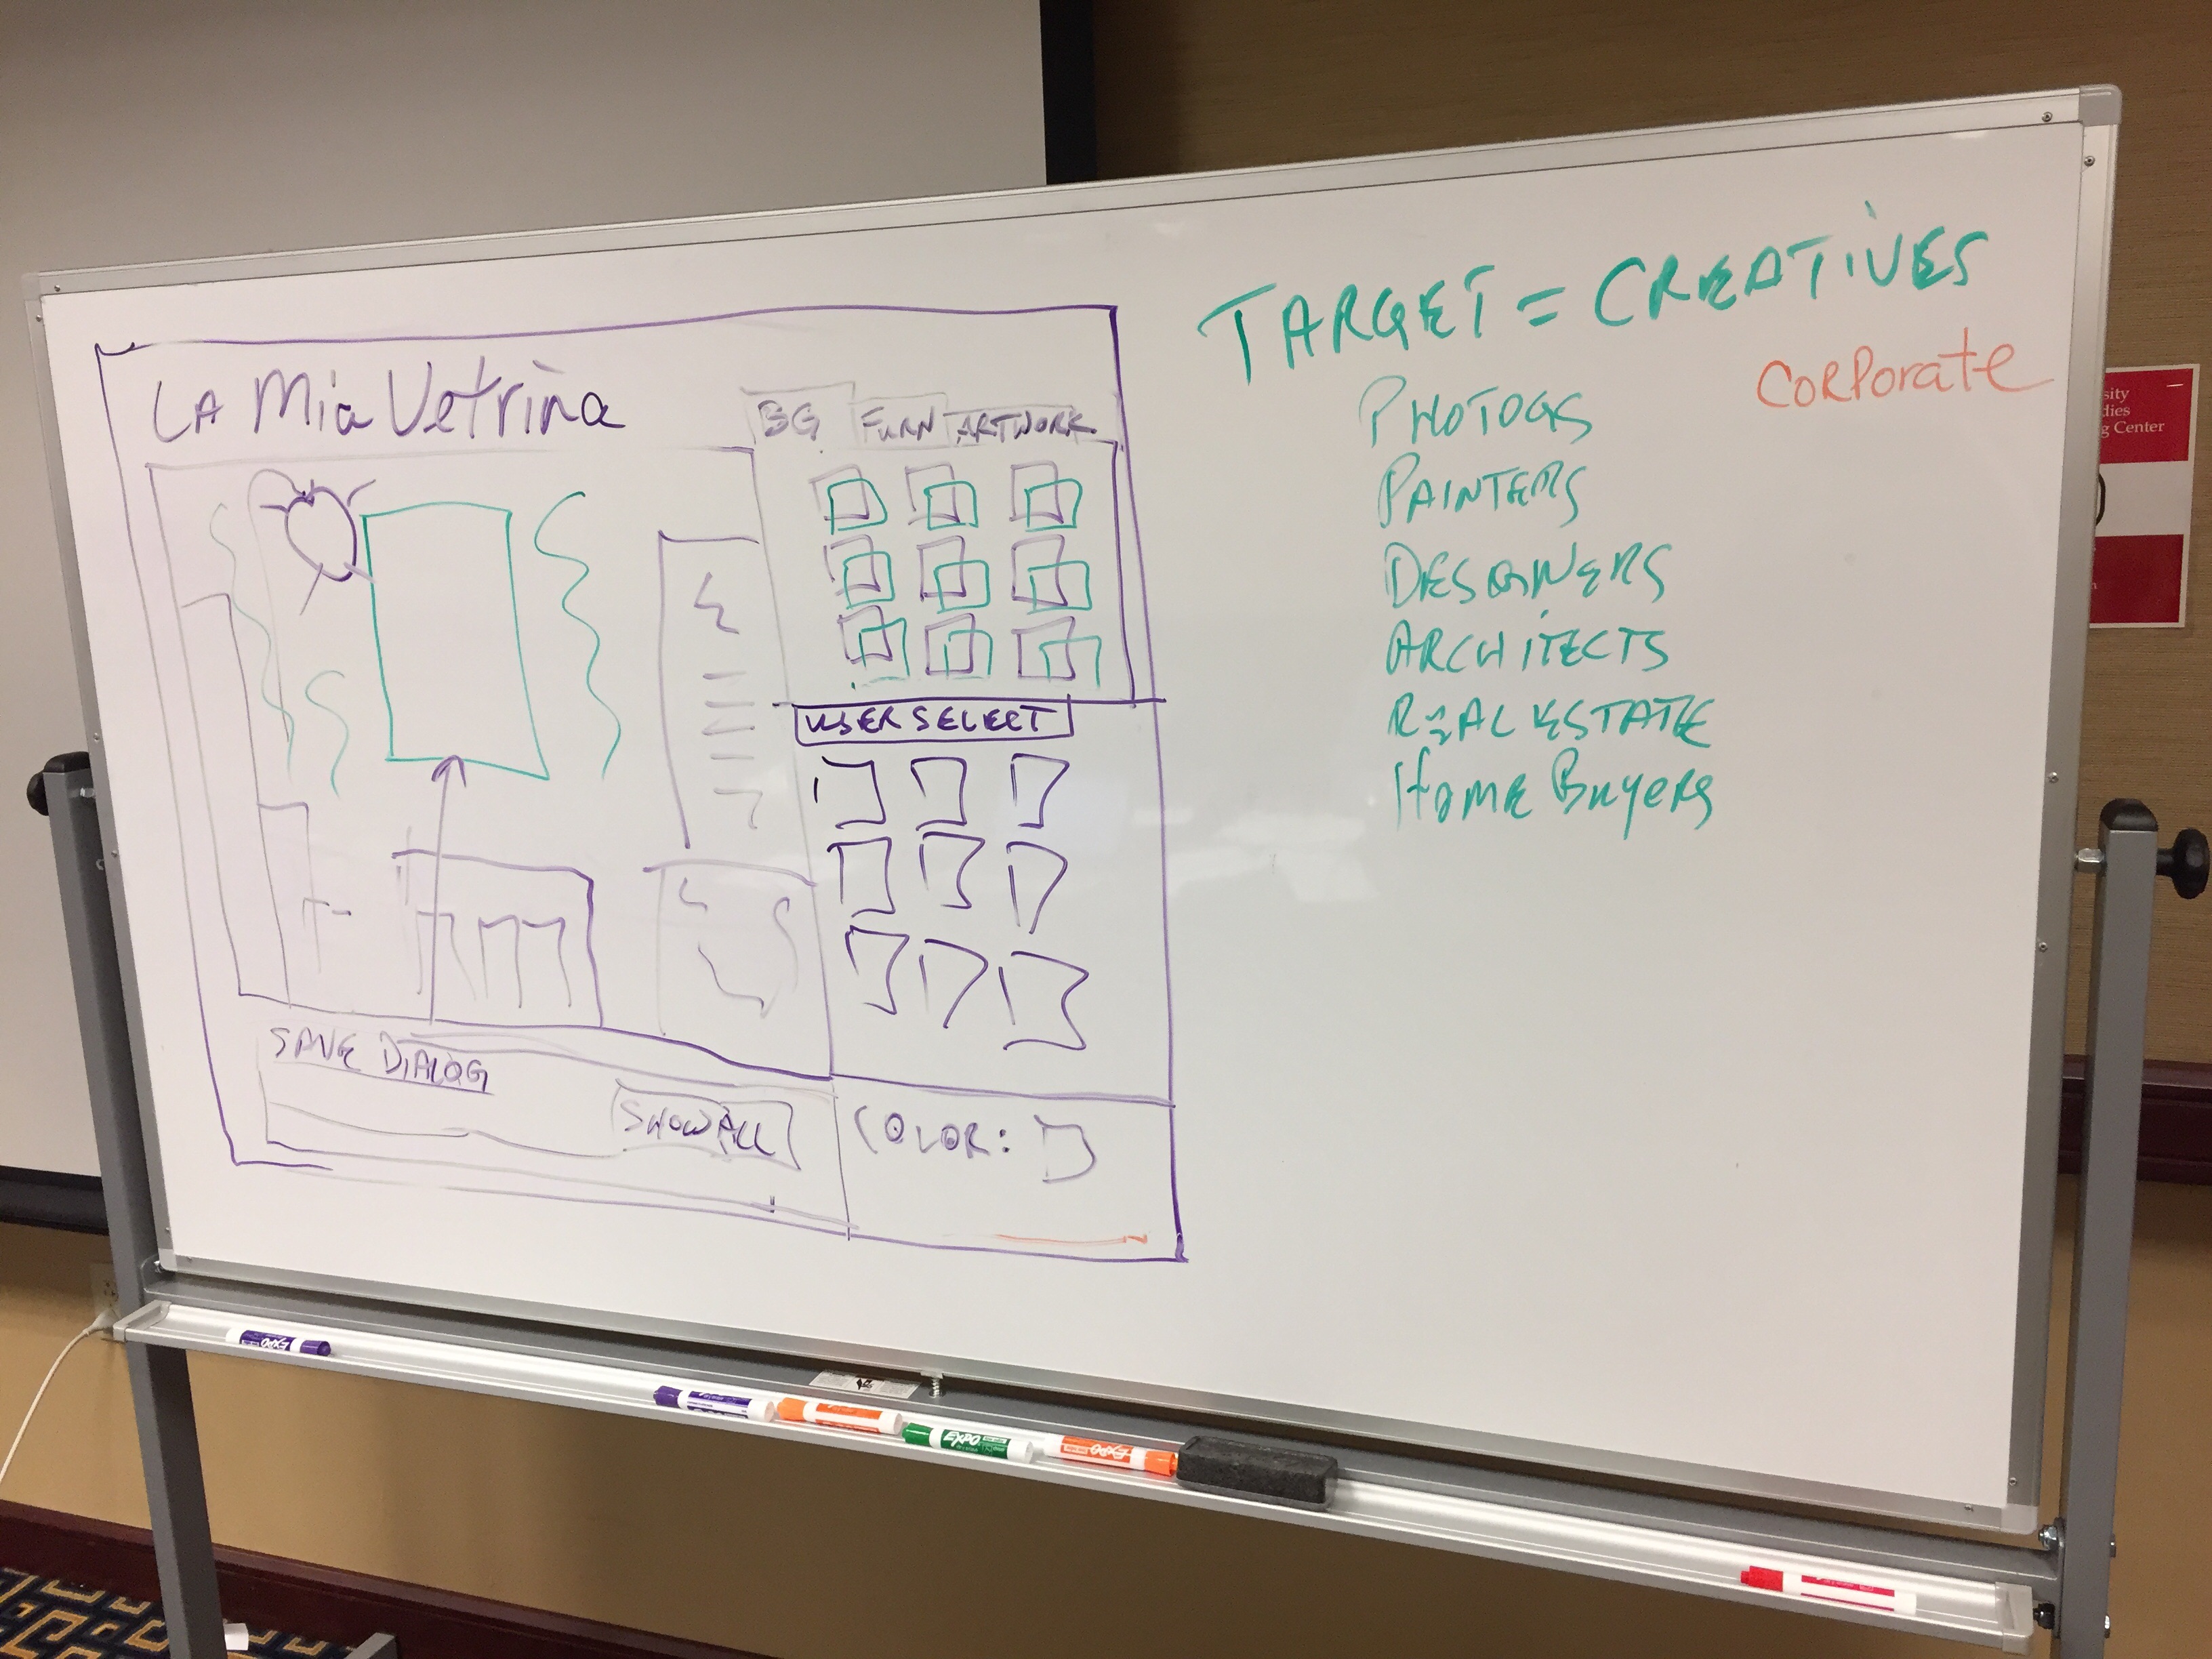 LA Mia Vetrina
BG FURN ARTWORK
USER SELECT
SAVE DIALOG
SHOW ALL
COLOR:
TARGET = CREATIVES
CORPORATE
PHOTOGS
PAINTERS
DESIGNERS
ARCHITECTS
REAL ESTATE
HOME BUYERS
sity
dies
g Center
EXPO
EXPO
EXPO